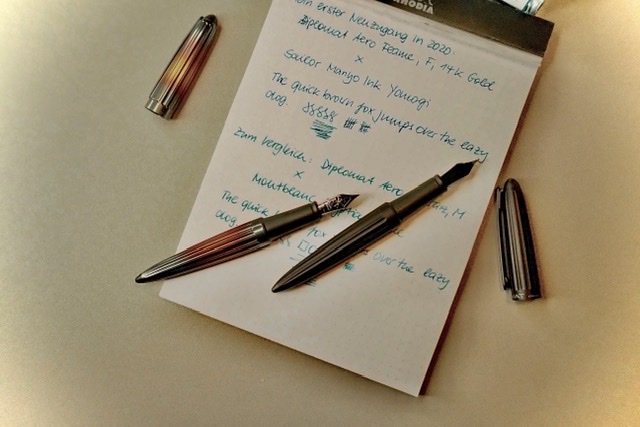 RHODIA
erster Neuzugang in 2020:
Diplomat Aero Flame, F, 14k Gold
x
Sailor Manyo Ink Yomogi
The quick brown fox jumps over the lazy
dog.
Zum Vergleich: Diplomat Aero
, M
x
Montblanc
The quick
fox
over the lazy
dog.